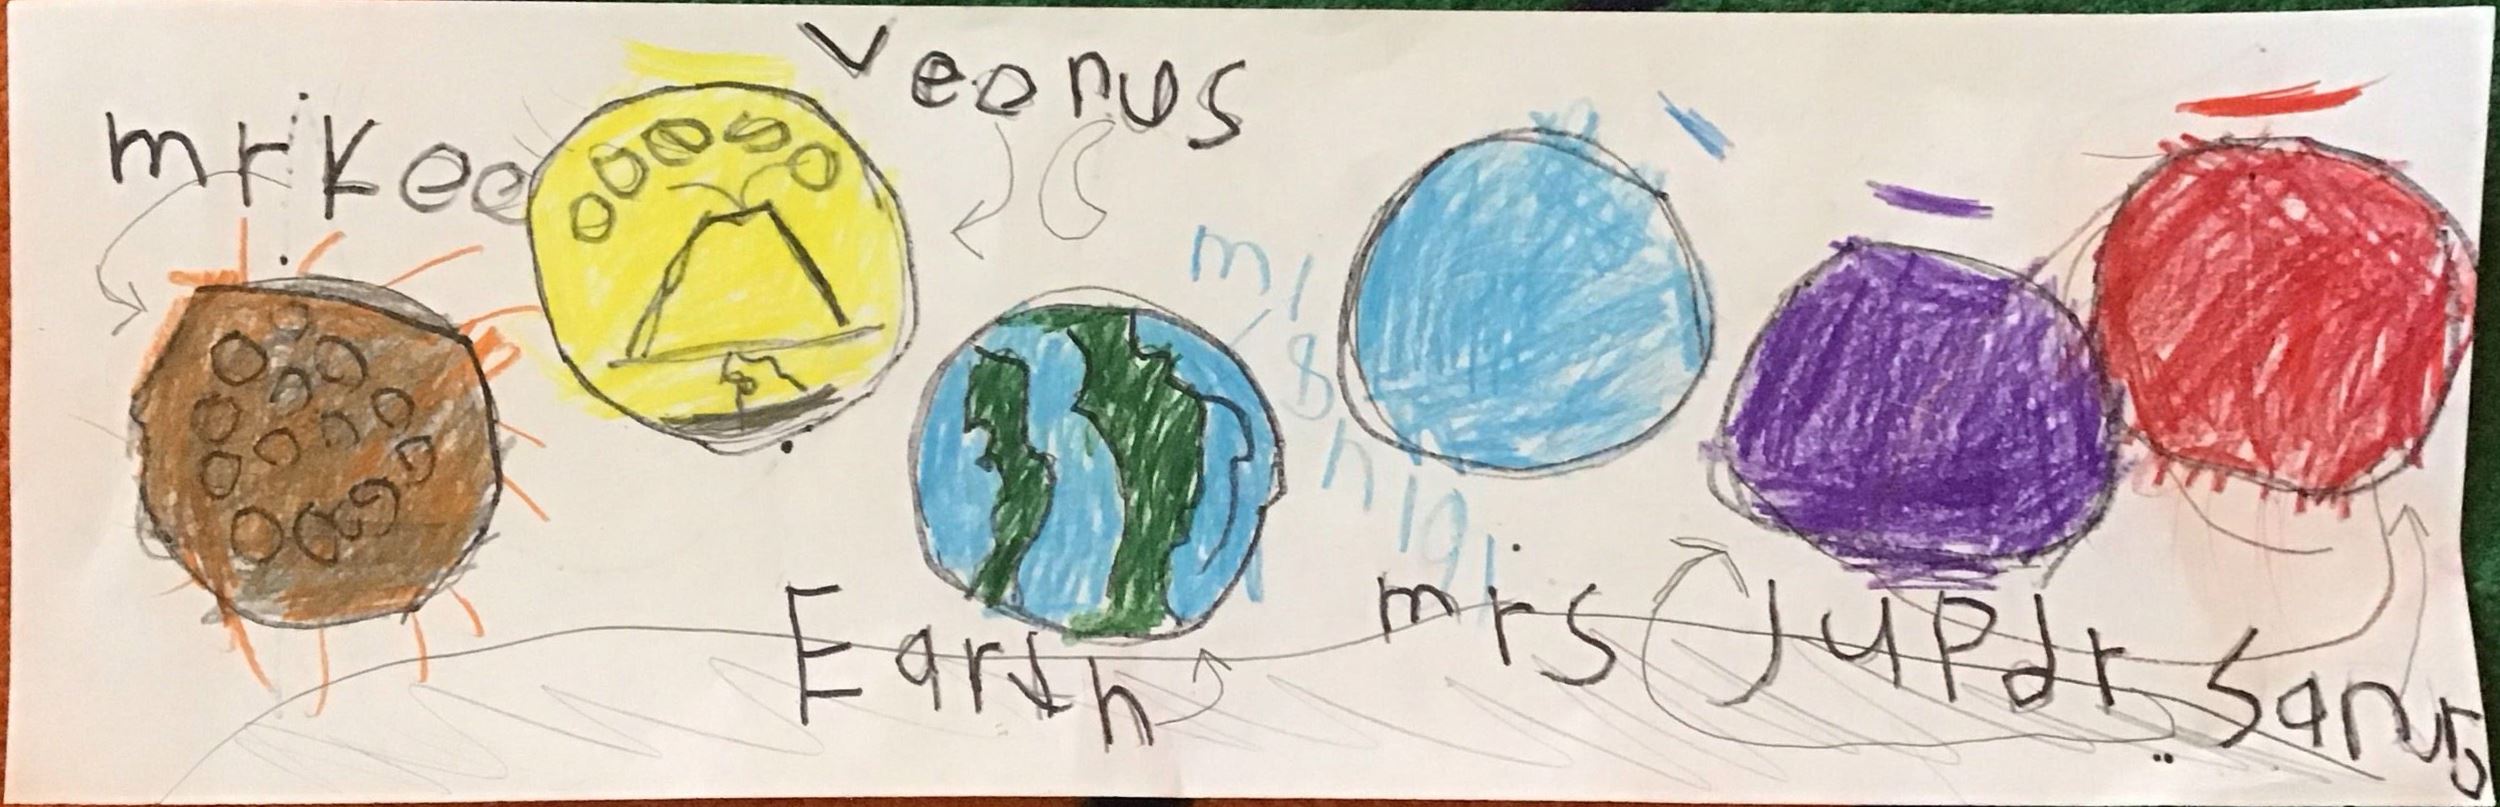 mrkee
Veonus
Earth
mrs
Jupdr
Sanus